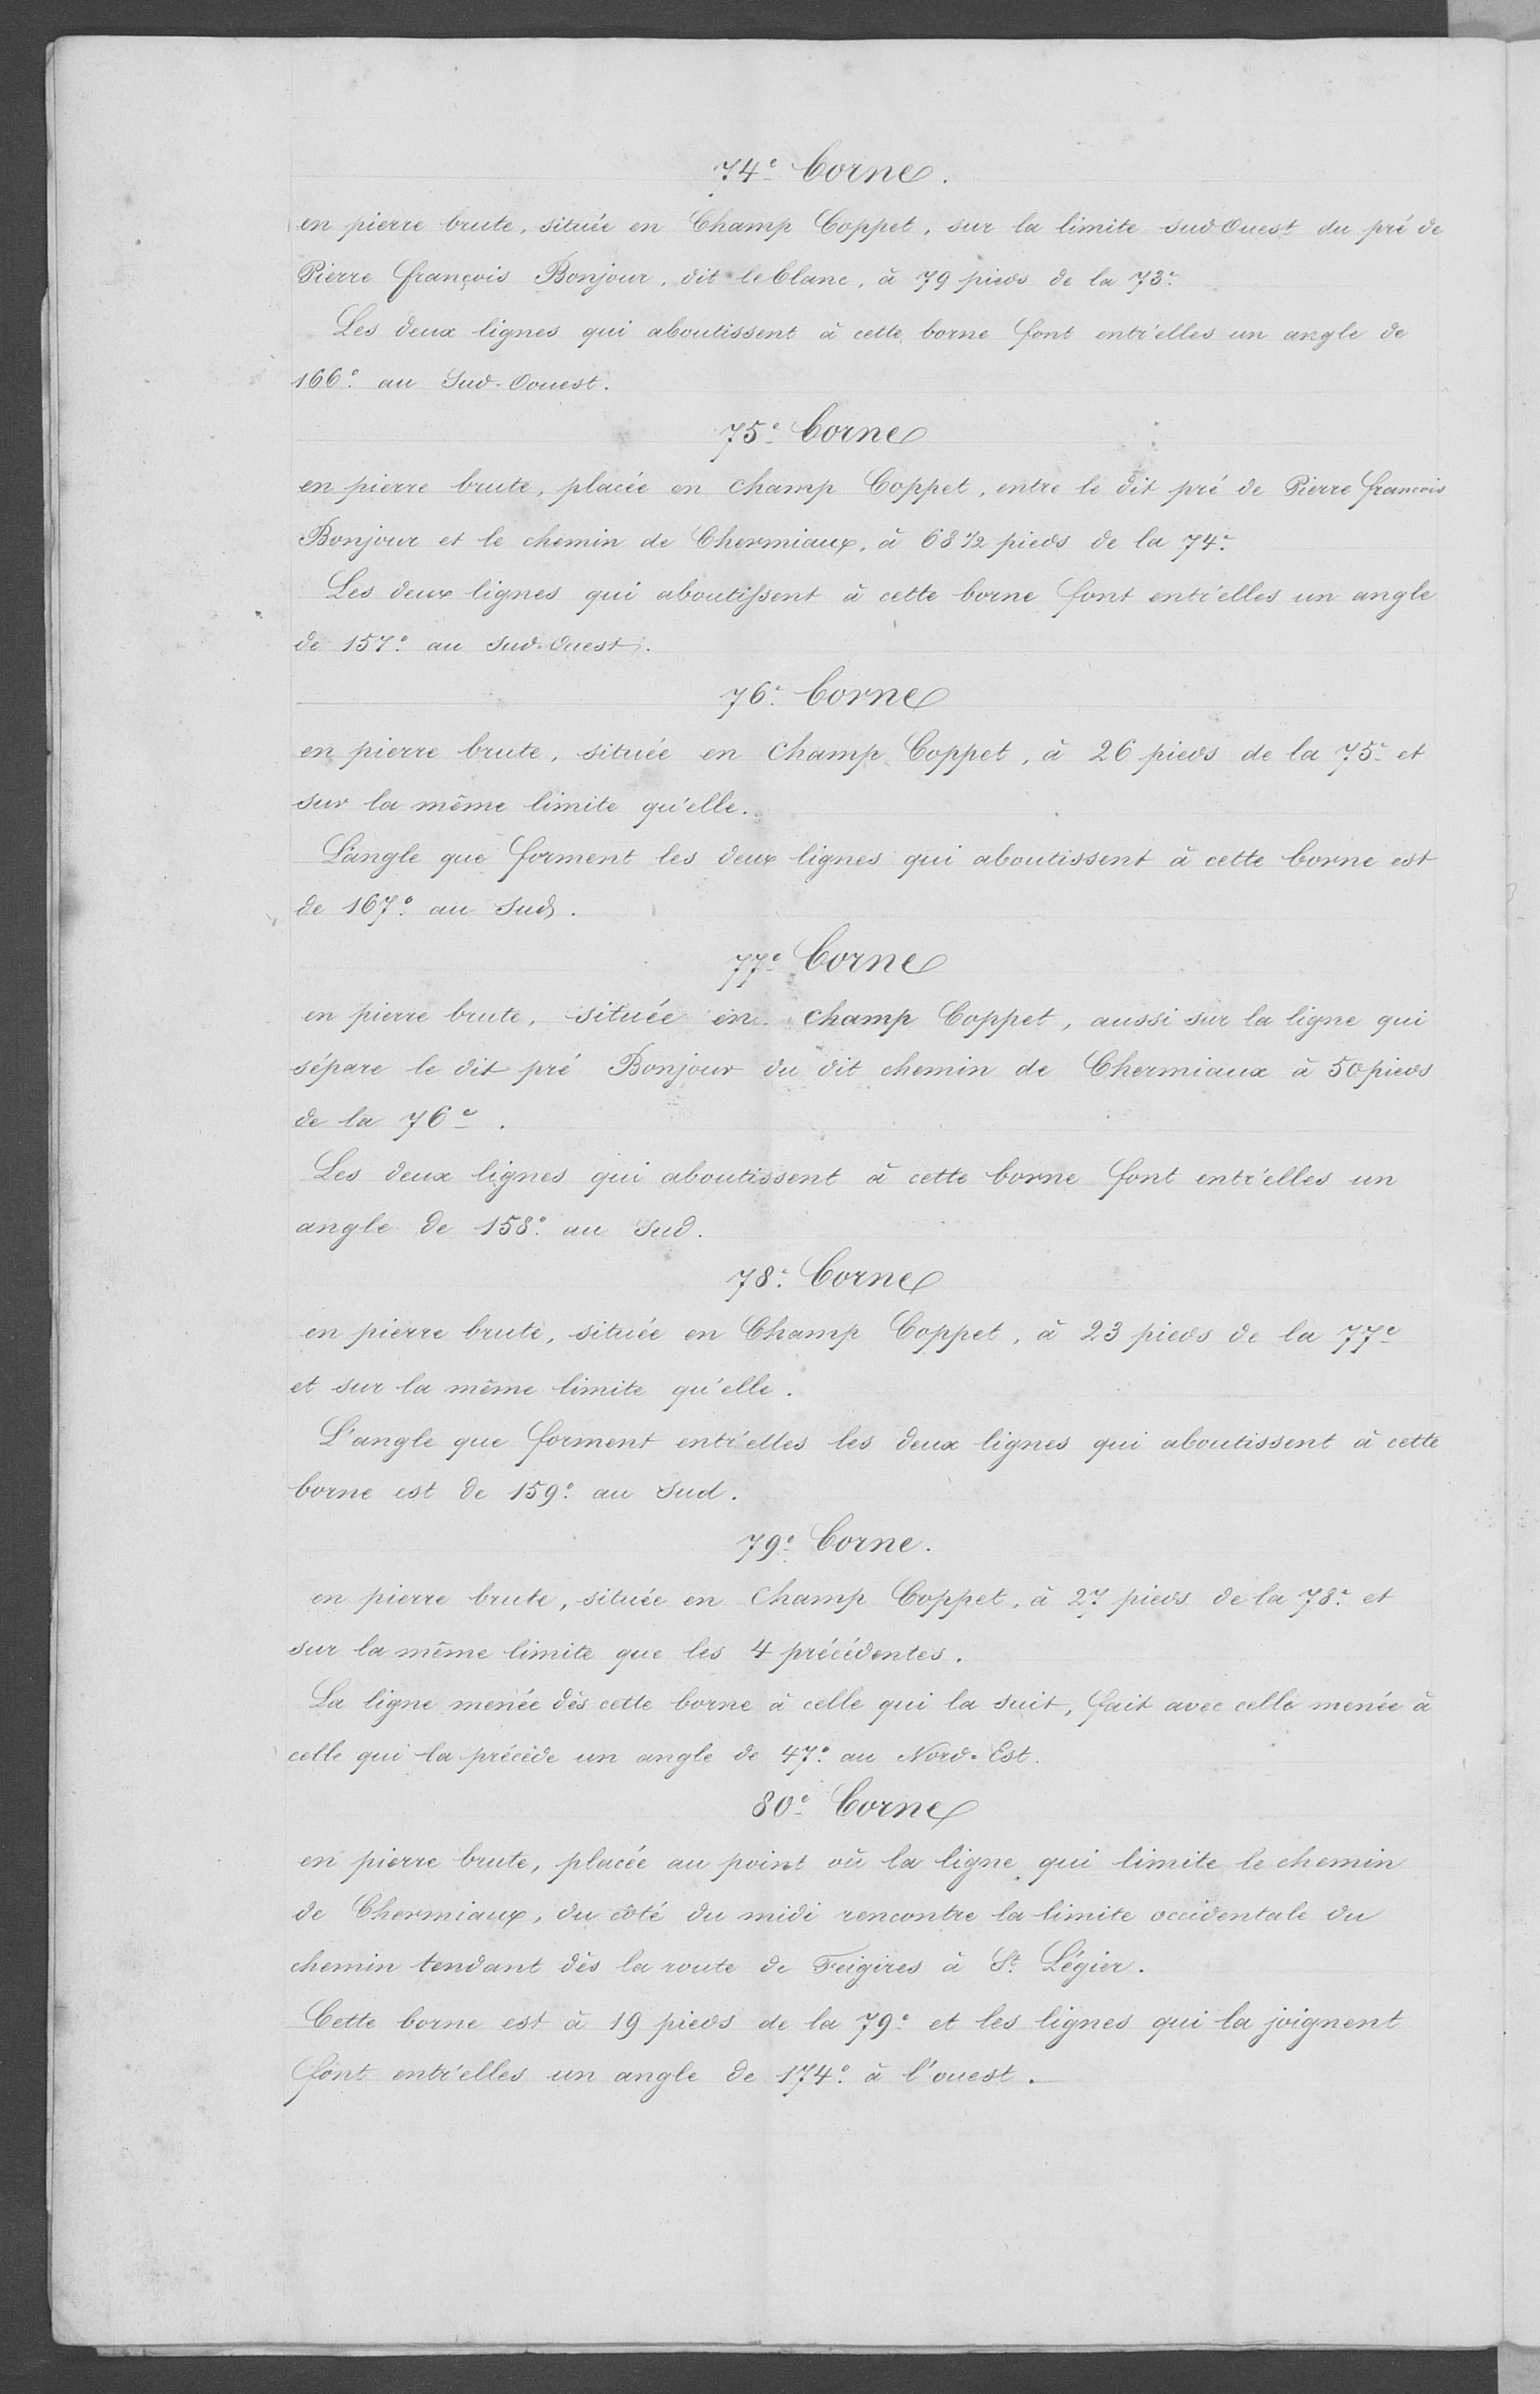 74e borne.
en pierre brute, située en Champ Coppet, sur la limite sud Ouest du pré de
Pierre françois Bonjour, dit le blanc, à 79 pieds de la 73e
Les deux lignes qui aboutissent à cette borne font entr'elles un angle de
166° au Sud-Oouest.
75e borne
en pierre brute, placée en champ Coppet, entre le dit pré de Pierre francois
Bonjour et le chemin de Chermiaux, à 68 1/2 pieds de la 74e
Les deux lignes qui aboutissent à cette borne font entr'elles un angle
de 157° au Sud-Ouest.
76e borne
en pierre brute, située en champ Coppet, à 26 pieds de la 75e et
sur la même limite qu'elle.
L'angle que forment les deux lignes qui aboutissent à cette borne est
de 167° au Sud.
77e borne
en pierre brute, située en champ Coppet, aussi sur la ligne qui
sépare le dit pré Bonjour du dit chemin de Chermiaux à 50 pieds
de la 76e.
Les deux lignes qui aboutissent à cette borne font entr'elles un
angle de 158° au Sud.
78e borne
en pierre brute, située en Champ Coppet, à 23 pieds de la 77e
et sur la même limite qu'elle.
L'angle que forment entr'elles les deux lignes qui aboutissent à cette
borne est de 159° au Sud.
79e borne.
en pierre brute, située en champ Coppet, à 27 pieds de la 78e et
sur la même limite que les 4 précédentes.
La ligne menée dès cette borne à celle qui la suit, fait avec celle menée à
celle qui la précède un angle de 47° au Nord-Est.
80e borne
en pierre brute, placée au point où la ligne qui limite le chemin
de Chermiaux, du côté du midi rencontre la limite occidentale du
chemin tendant dès la route de Feigires à St. Légier.
Cette borne est à 19 pieds de la 79e et les lignes qui la joignent
font entr'elles un angle de 174° à l'ouest.